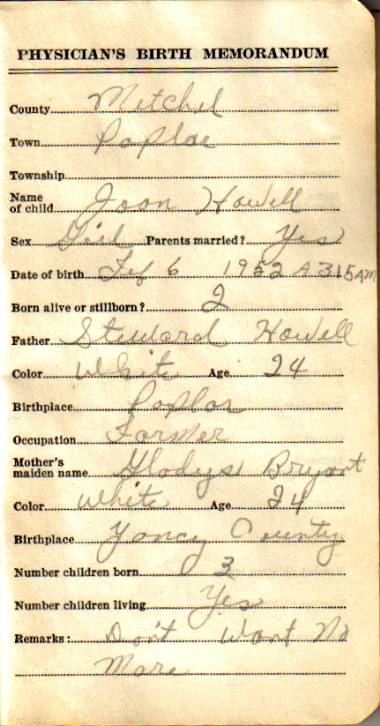 PHYSICIAN'S BIRTH MEMORANDUM
County Mitchel
Town Poplar
Township
Name of child Joan Howell
Sex Girl Parents married? Yes
Date of birth Feb 6 1952 A 315 AM
Born alive or stillborn? 2
Father Steward Howell
Color White Age 24
Birthplace Poplar
Occupation Farmer
Mother's maiden name Gladyse Bryant
Color White Age 24
Birthplace Yancy County
Number children born 3
Number children living Yes
Remarks: Don't Want No
More